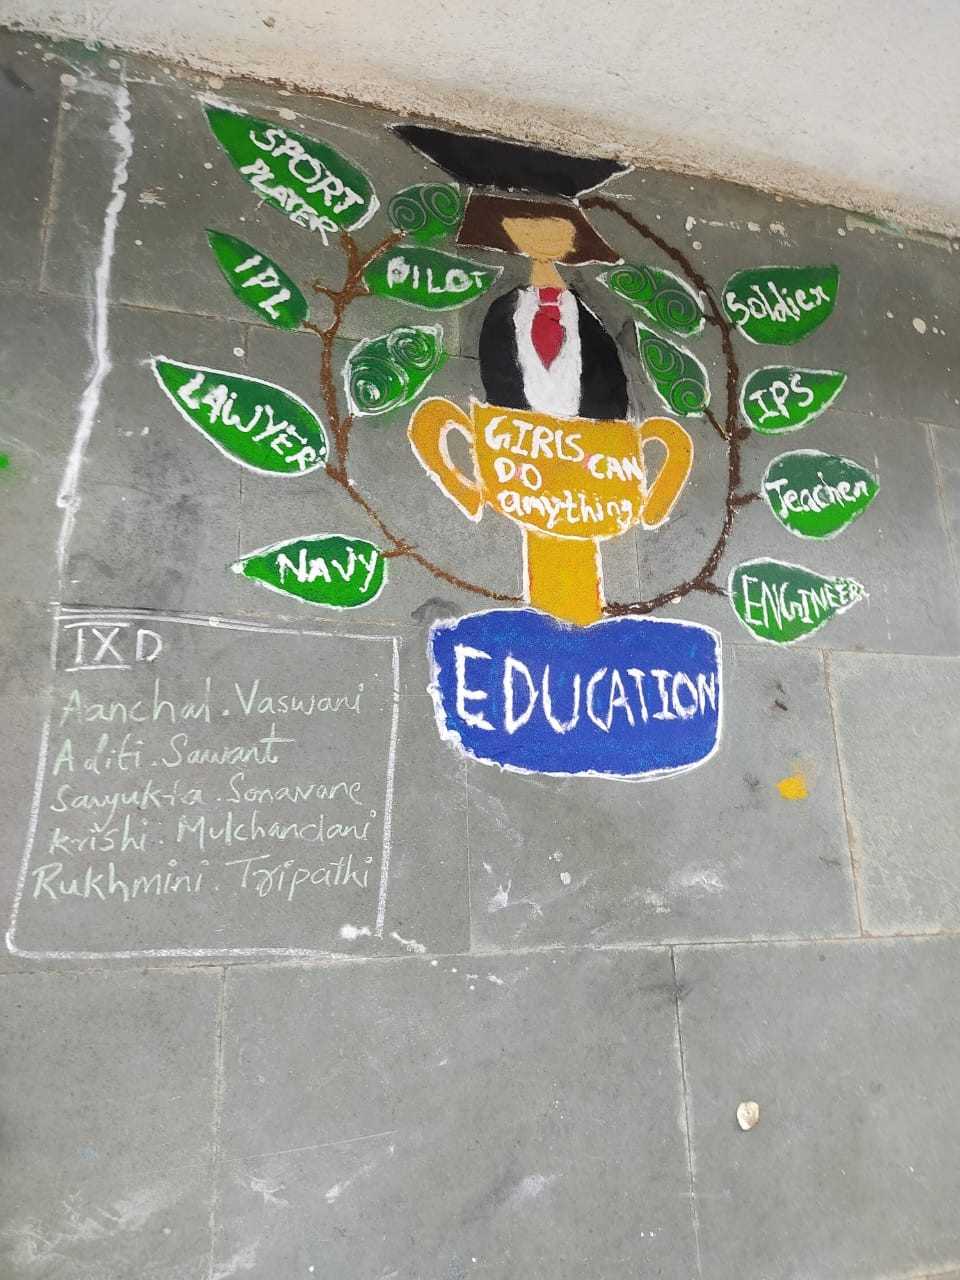 SPORT
PLAYER
IPL
PILOT
LAWYER
NAVY
Soldier
IPS
Teacher
ENGINEER
GIRLS
DO CAN
anything.
EDUCATION
IX D
Aanchal. Vaswani
Aditi. Sawant
Sanyukta. Sonavane
Krishi. Mulchandani
Rukhmini. Tripathi